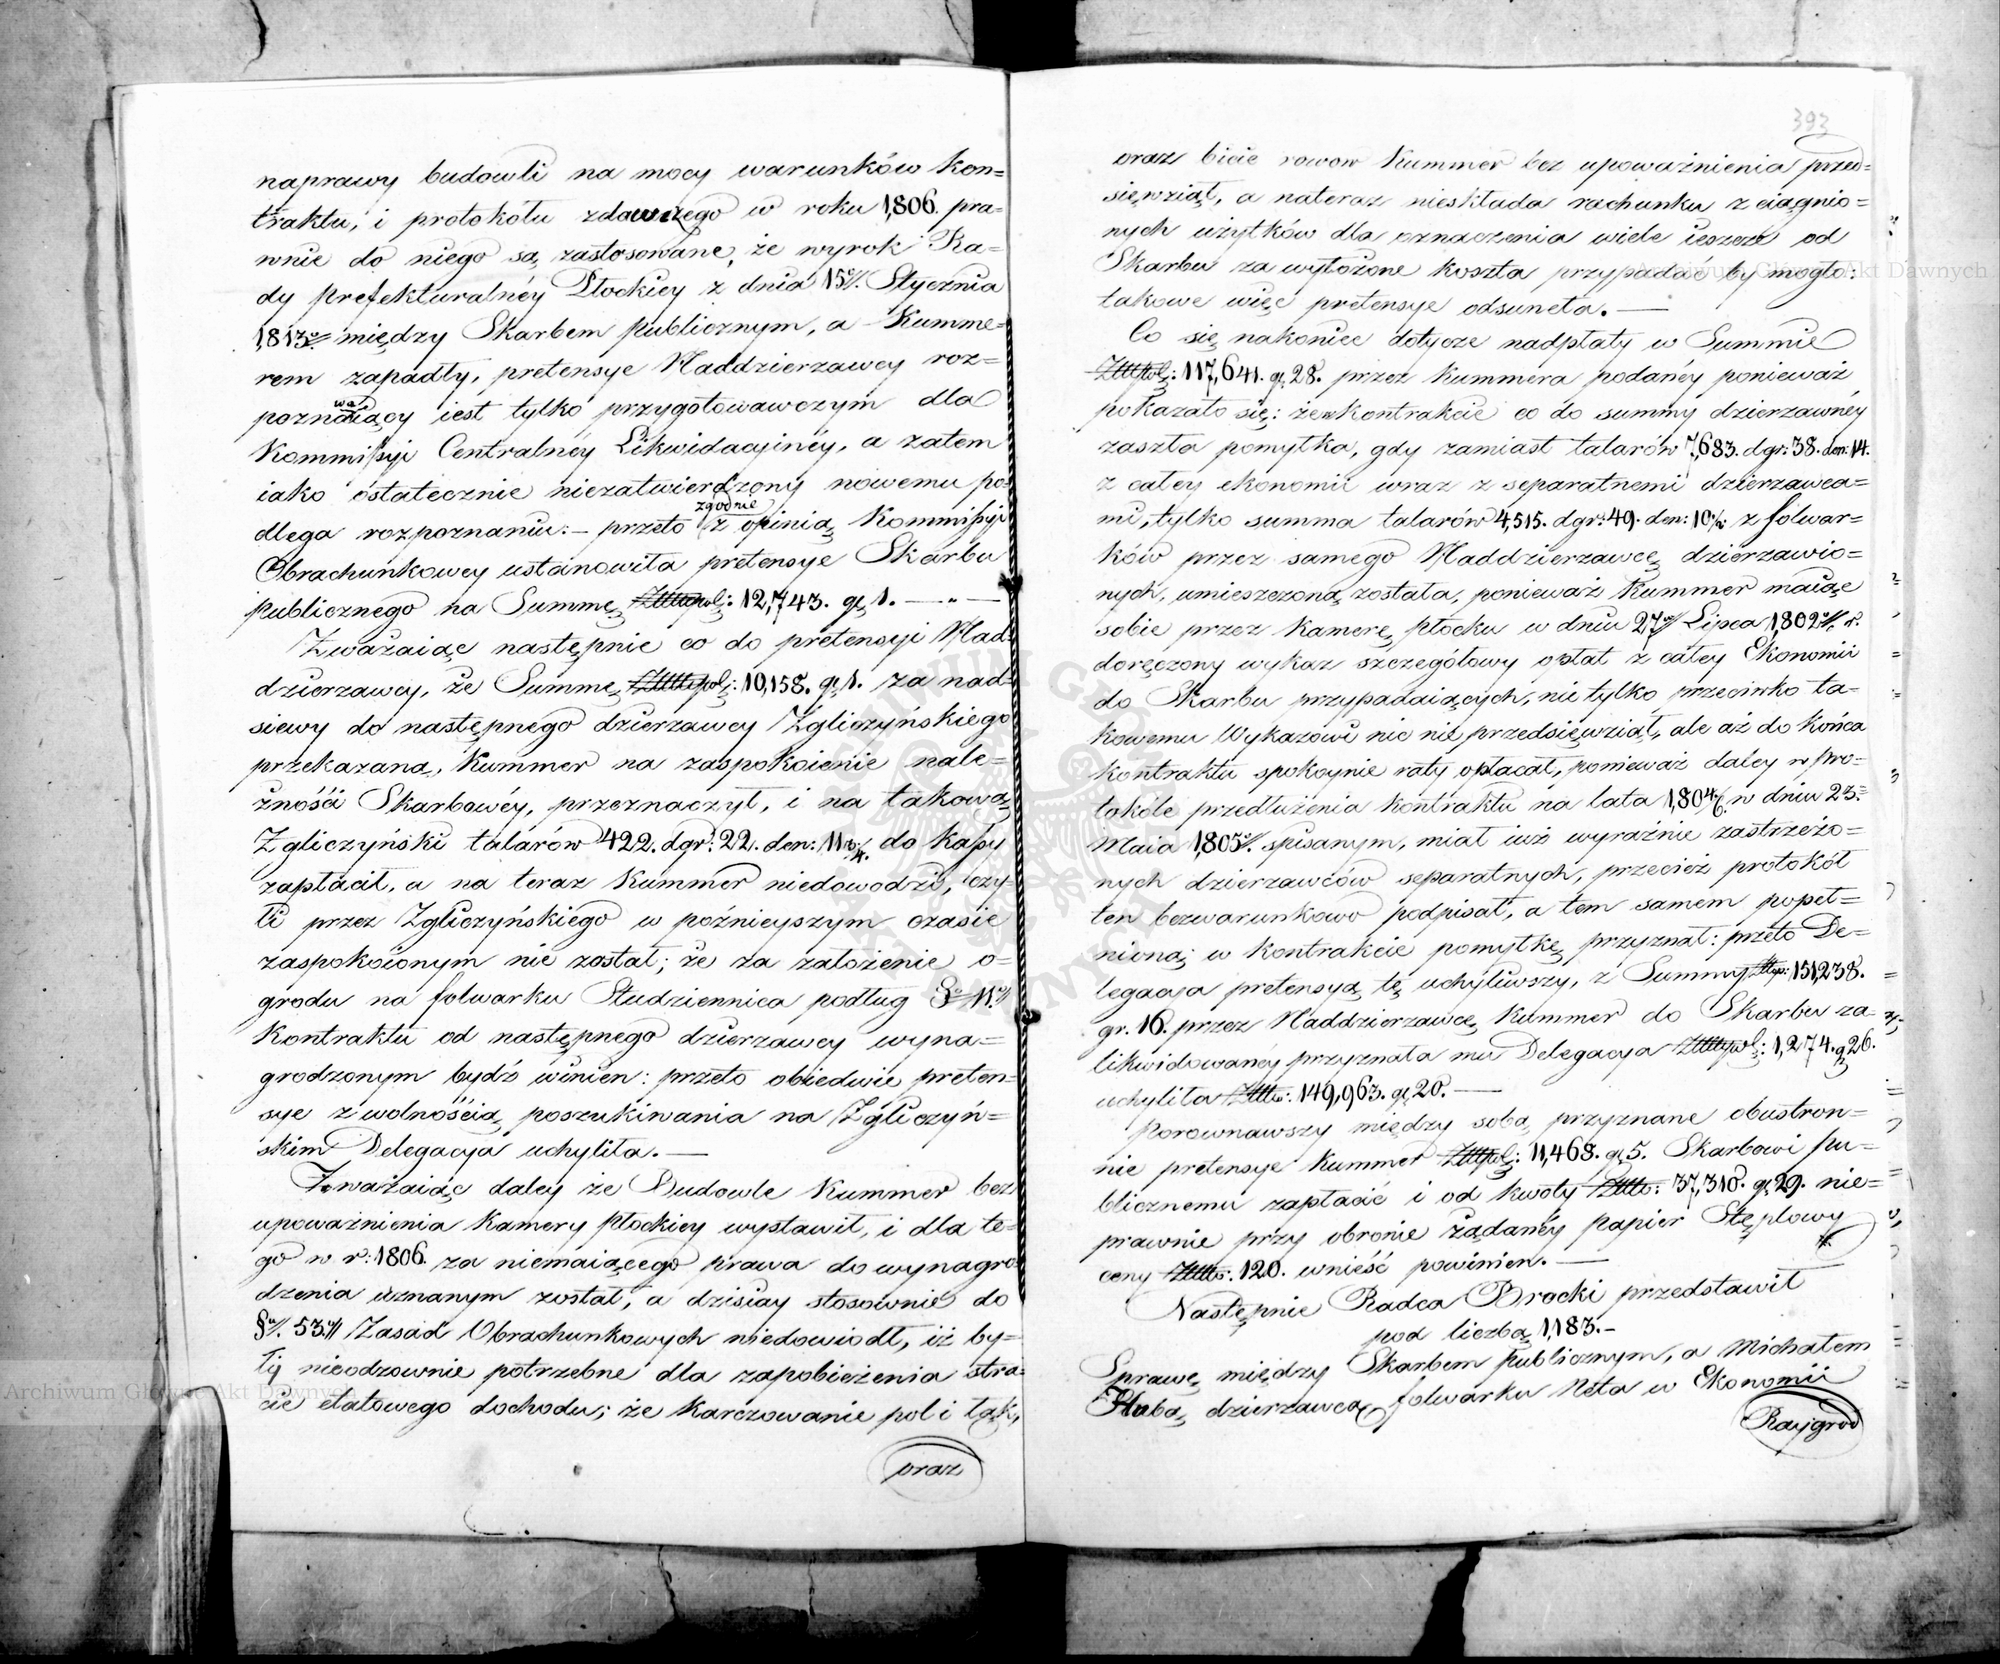 naprawy budowli na mocy warunków kon=
traktu, i protokołu zdawczego w roku 1,806. pra=
wnie do niego są zastosowane, że wyrok Ra=
dy prefekturalnéy Płockiey z dnia 15º/. Stycznia
1,813º/. między Skarbem publicznym, a Kumme=
rem zapadły, pretensye Naddzierzawcy roz=
wa
poznaiący iest tylko przygotowawczym dla
Kommissyi Centralnéy Likwidacyinéy, a zatem
iako ostatecznie niezatwierdzony nowemu po=
zgodnie
dlega rozpoznaniu: — przeto z opinią Kommissyi
Obrachunkowey ustanowiła pretensye Skarbu
publicznego na Summę Złtpol: 12,743. gr 1. — " —
Zważaiąc następnie co do pretensyi Nad=
dzierzawcy, że Summę Złtpol: 10,158. gr 1. za nad=
siewy do następnego dzierzawcy Zgliczyńskiego
przekazaną, Kummer na zaspokoienie nale=
żności Skarbowéy, przeznaczył, i na takową
Zgliczyński talarów 422. dgr: 22. den: 11 3/4. do kassy
zapłacił, a na teraz Kummer niedowodzi, czy=
li przez Zgliczyńskiego w poźnieyszym czasie
zaspokoionym nie został; że za założenie o=
grodu na folwarku Studziennica podług §º 11.º/
Kontraktu od następnego dzierzawcy wyna=
grodzonym bydź winien: przeto obiedwie preten=
sye z wolnością poszukiwania na Zgliczyń=
skim Delegacya uchyliła. —
Zważaiąc daley że Budowle Kummer bez
upoważnienia Kamery płockiey wystawił, i dla te=
go w r: 1806. za niemaiącego prawa do wynagro=
dzenia uznanym został, a dzisiay stosownie do
§º/. 53.º/ Zasad Obrachunkowych niedowiodł, iż by=
ły nieodzownie potrzebne dla zapobieżenia stra=
cie etatowego dochodu; że karczowanie pol i łąk,
oraz
393
oraz bicie rowow Kummer bez upoważnienia przed=
sięwziął, a nateraz nieskłada rachunku z ciągnio=
nych użytków dla oznaczenia wiele ieszcze od
Skarbu za wyłożone koszta przypadać by mogło:
takowe więc pretensye odsuneła. —
Co się nakoniec dotycze nadpłaty w Summie
Złtpol: 117,641. gr 28. przez Kummera podanéy ponieważ
pokazało się: że w kontrakcie co do summy dzierzawnéy
zaszła pomyłka, gdy zamiast talarów 7,683. dgr: 38. den: 14.
z całey ekonomii wraz z separatnemi dzierzawca=
mi, tylko summa talarów 4,515. dgr: 49. den: 10 1/2 z folwar=
ków przez samego Naddzierzawcę dzierzawio=
nych, umieszczoną została, ponieważ Kummer maiąc
sobie przez Kamerę płocku w dniu 27º/ Lipca 1,802º/. r.
doręczony wykaz szczegółowy opłat z całey Ekonomii
do Skarbu przypadaiących, nie tylko przeciwko ta=
kowemu Wykazowi nic nie przedsięwziął, ale aż do końca
kontraktu spokoynie raty opłacał, ponieważ daley w pro=
tokóle przedłużenia Kontraktu na lata 1,804/6. w dniu 23.=
Maia 1,805º/. spisanym, miał iuż wyraźnie zastrzeżo=
nych dzierzawców separatnych, przecież protokół
ten bezwarunkowo podpisał, a tem samem popeł=
nioną w kontrakcie pomyłkę, przyznał: przeto De=
legacya pretensyą tę uchyliwszy, z Summy Złtp: 151,238.
gr. 16. przez Naddzierzawcę Kummer do Skarbu za=
likwidowanéy przyznała mu Delegacya Złtpol: 1,274. gr 26.
uchyliła Złtto: 149,963. gr 20. —
Porownawszy między sobą przyznane obustron=
nie pretensye Kummer Złtpol: 11,468. gr 5. Skarbowi pu=
blicznemu zapłacić i od kwoty Złtto: 37,310. gr 29. nie=
prawnie przy obronie żądanéy papier Stęplowy
ceny Złtto: 120. wnieść powinien. —
Następnie Radca Brocki przedstawił
pod liczbą 1,183. —
Sprawę między Skarbem publicznym, a Michałem
Hubą dzierzawcą folwarku Neta w Ekonomii
Raygrod
Archiwum Główne Akt Dawnych
Archiwum Główne Akt Dawnych